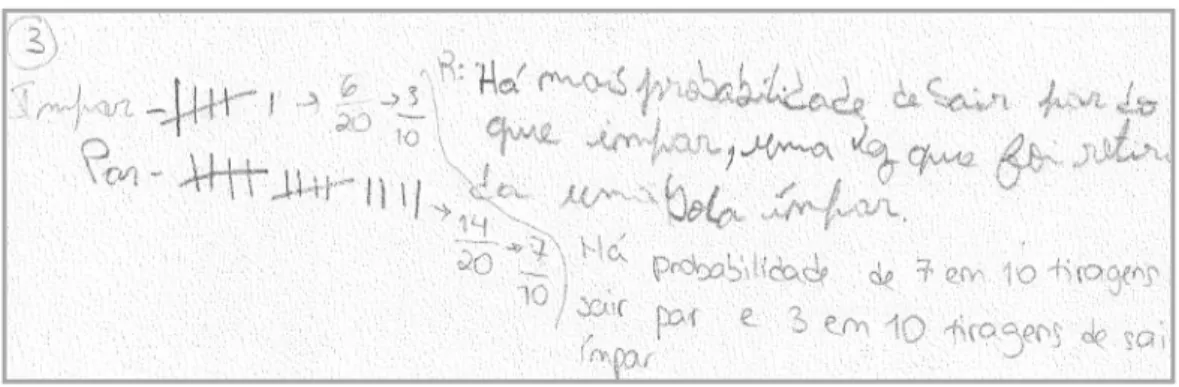 3
Impar - |||| | → 6/20 → 3/10
Par - |||| |||| |||| → 14/20 → 7/10
R: Há mais probabilidade de sair par do
que impar, uma vez que foi retir
da uma bola ímpar.
Há probabilidade de 7 em 10 tiragens
sair par e 3 em 10 tiragens de sai
ímpar